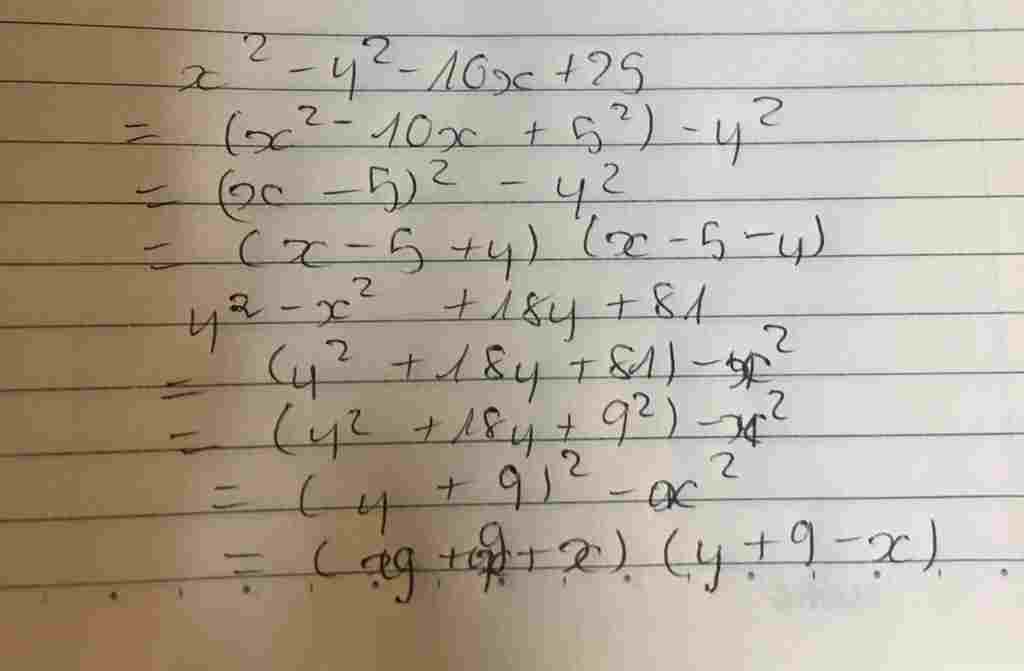 x² - y² - 10x + 25
= (x² - 10x + 5²) - y²
= (x - 5)² - y²
= (x - 5 + y) (x - 5 - y)
y² - x² + 18y + 81
= (y² + 18y + 81) - x²
= (y² + 18y + 9²) - x²
= (y + 9)² - x²
= (y + 9 + x) (y + 9 - x)